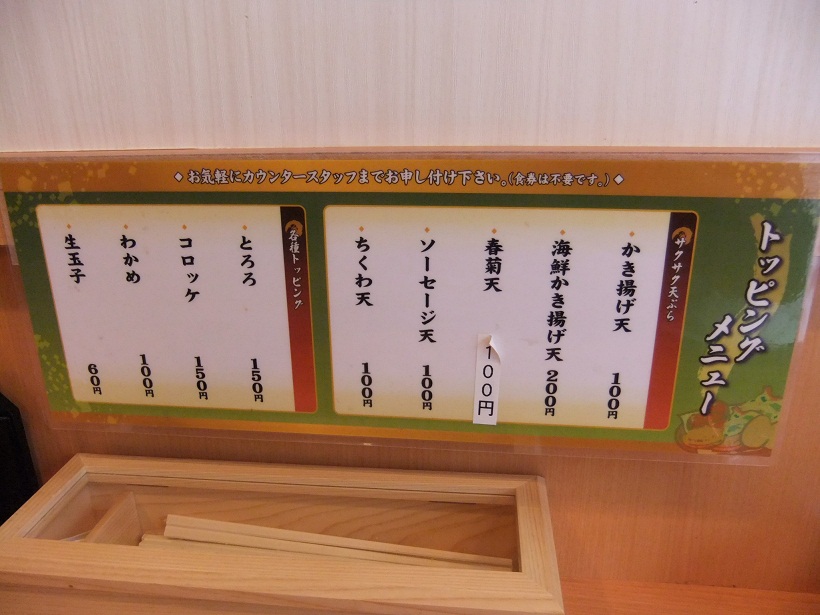 ◆お気軽にカウンタースタッフまでお申し付け下さい。(食券は不要です。)◆
トッピング
メニュー
サクサク天ぷら
かき揚げ天 100円
海鮮かき揚げ天 200円
春菊天 100円
ソーセージ天 100円
ちくわ天 100円
各種トッピング
とろろ 150円
コロッケ 150円
わかめ 100円
生玉子 60円